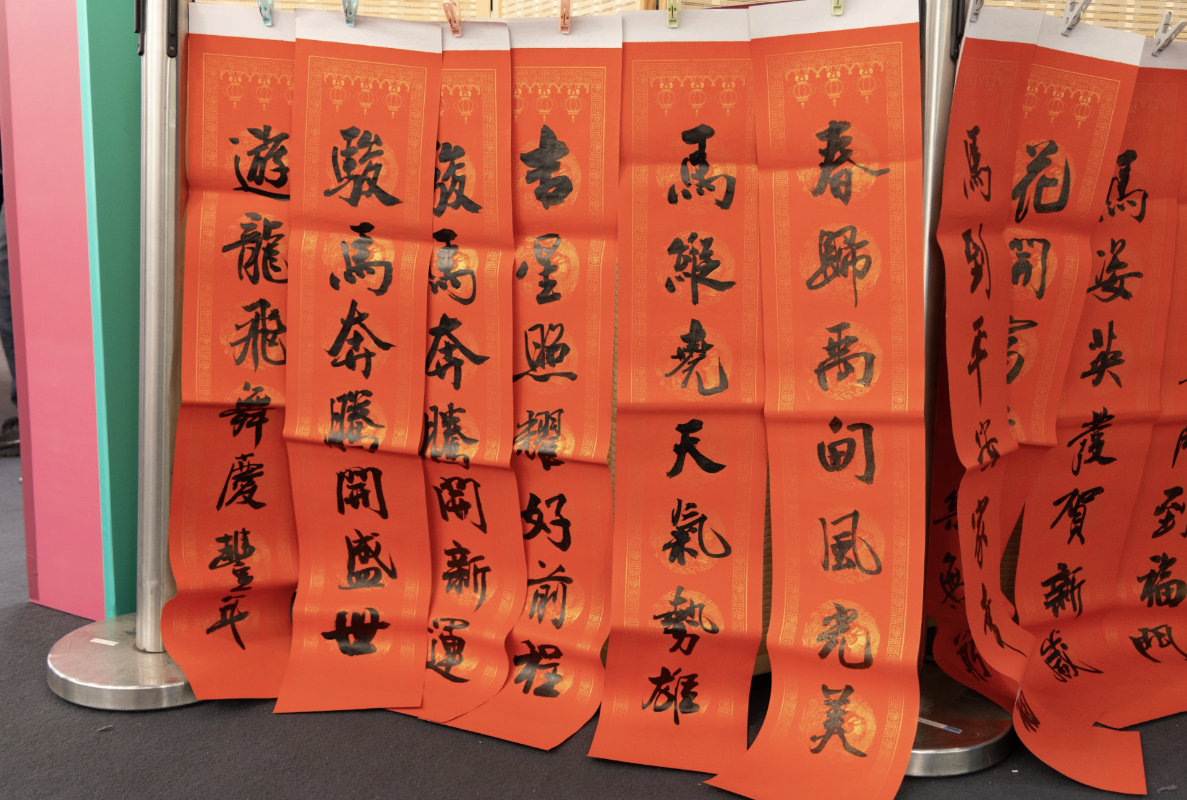 到福門
馬姿英發賀新歲
花開富
馬到平安家
春歸禹甸風光美
馬縱堯天氣勢雄
吉星照耀好前程
駿馬奔騰開新運
駿馬奔騰開盛世
遊龍飛舞慶豐年